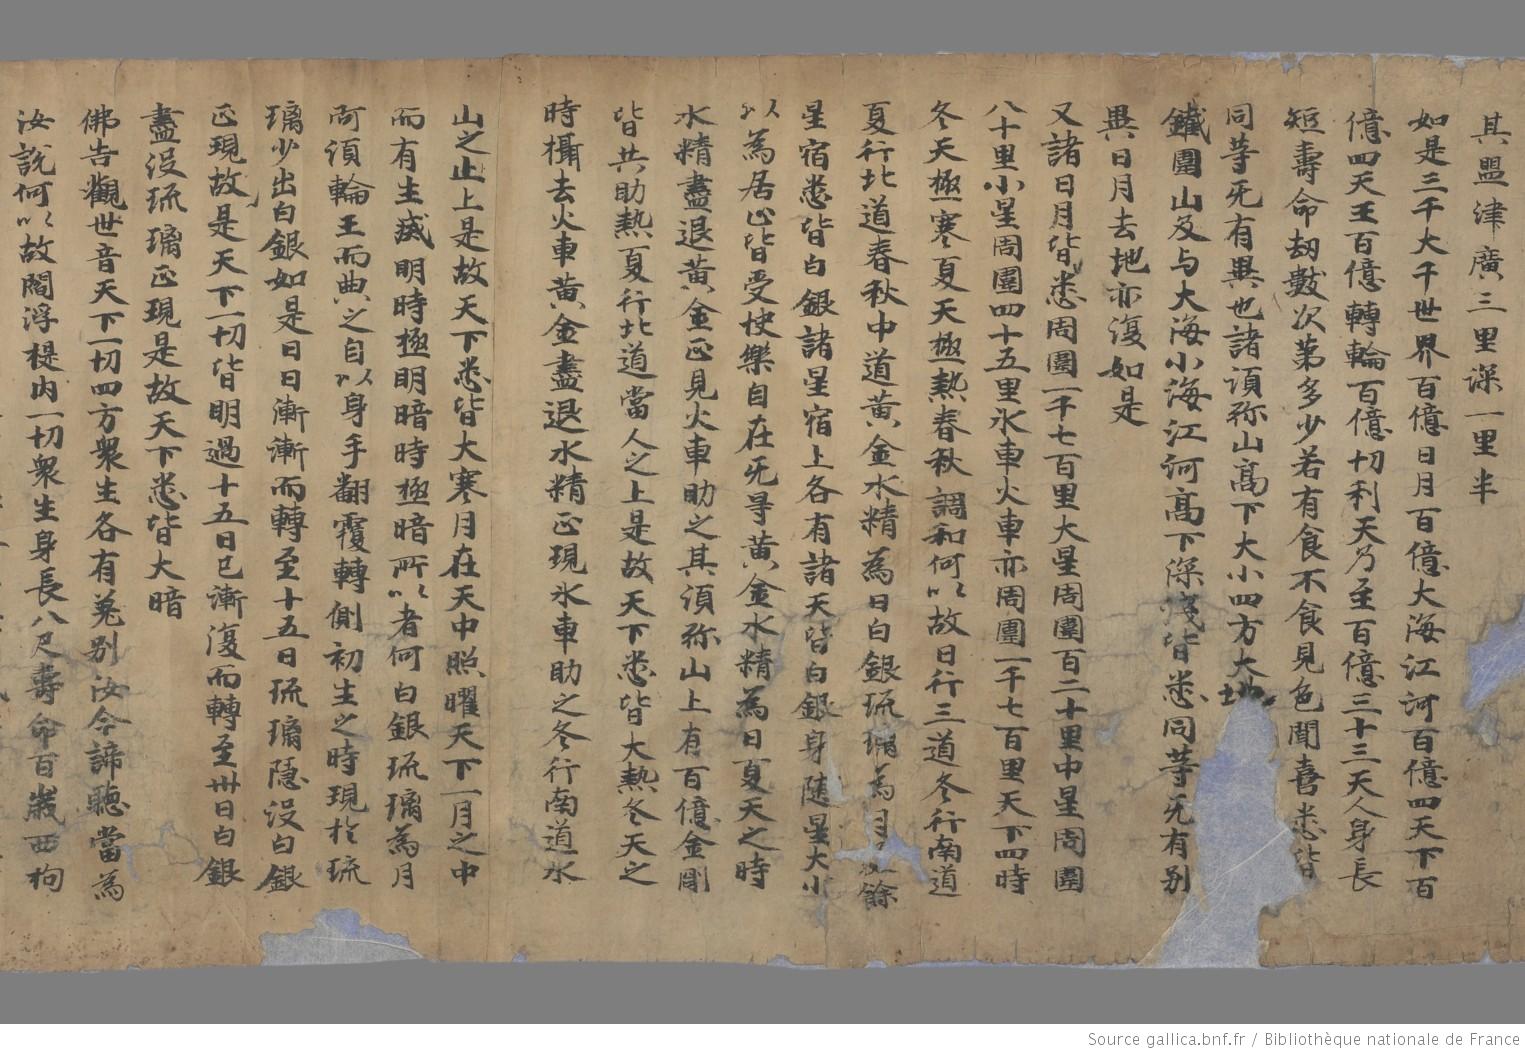 其盟津廣三里深一里半
如是三千大千世界百億日月百億大海江河百億四天下百
億四天王百億轉輪百億忉利天乃至百億三十三天人身長
短壽命劫數次第多少若有食不食見色聞喜悉皆
同等无有異也諸須弥山高下大小四方大地
鐵圍山及与大海小海江河高下深淺皆悉同等无有別
異日月去地亦復如是
又諸日月皆悉周圍一千七百里大星周圍百二十里中星周圍
八十里小星周圍四十五里水車火車亦周圍一千七百里天下四時
冬天極寒夏天極熱春秋調和何以故日行三道冬行南道
夏行北道春秋中道黄金水精為日白銀琉璃為月 餘
星宿悉皆白銀諸星宿上各有諸天皆白銀身隨星大小
以為居止皆受快樂自在无导黄金水精為日夏天之時
水精盡退黄金正見火車助之其須弥山上有百億金剛
皆共助熱夏行北道當人之上是故天下悉皆大熱冬天之
時攝去火車黄金盡退水精正現氷車助之冬行南道水
山之止上是故天下悉皆大寒月在天中照曜天下一月之中
而有生滅明時極明暗時極暗所以者何白銀琉璃為月
阿須輪王而典之自以身手翻覆轉側初生之時現於琉
璃少出白銀如是日日漸漸而轉至十五日琉璃隱没白銀
正現故是天下一切皆明過十五日已漸復而轉至卅日白銀
盡没琉璃正現是故天下悉皆大暗
佛告觀世音天下一切四方衆生各有差別汝今諦聽當為
汝說何以故閻浮提内一切衆生身長八尺壽命百歲西拘